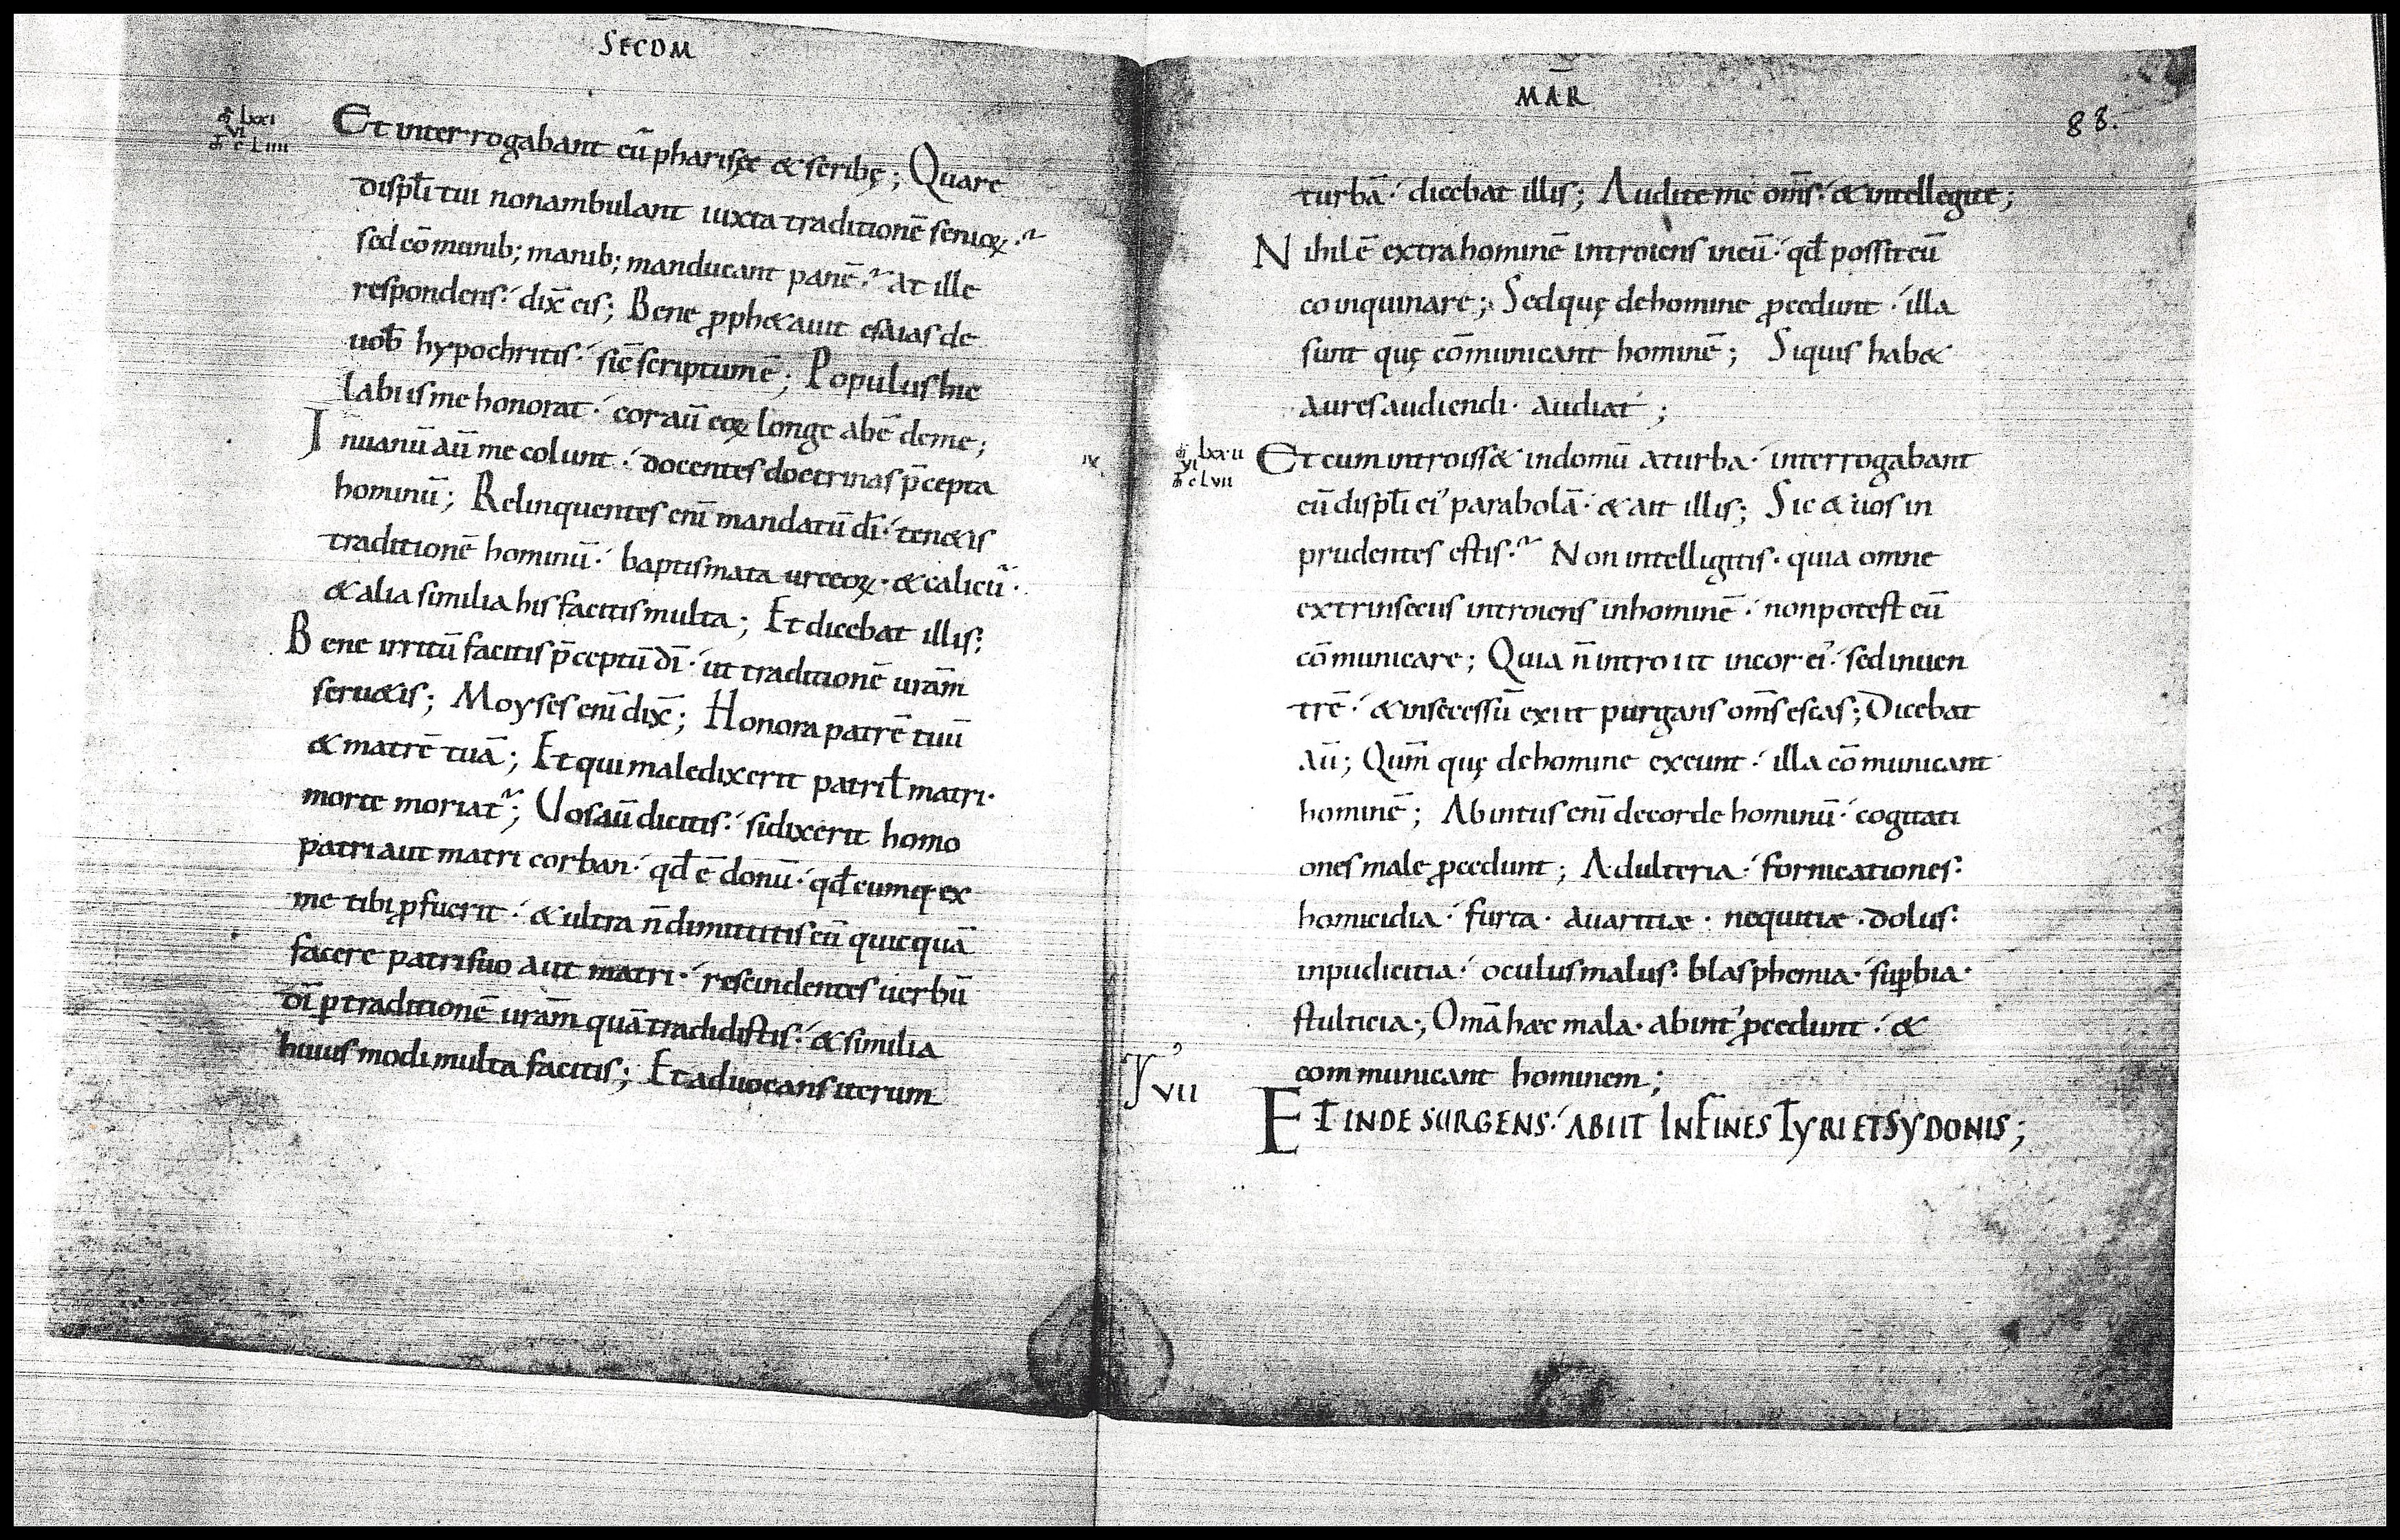 SECDM̄
mr̄ lxxi
vi
m̄ cliiii
Et interrogabant eū pharisęi & scribę; Quare
discipl̄i tui nonambulant iuxta traditionē senioꝝ.
sed cōmunib; manib; manducant panē. at ille
respondens. dix̄ eis; Bene ꝓph&auit esaias de
uob̄ hypochritis. sic̄ scriptumē; Populus hic
labiis me honorat. cor aū eoꝝ longe abē deme;
In uanū aū me colunt. docentes doctrinas p̄cepta
hominū; Relinquentes eni mandatū dī. ten&is
traditionē hominū. baptismata urceoꝝ. & calicū.
& alia similia his facitis multa; Et dicebat illis;
Bene irritū facitis p̄ceptū dī. ut traditionē urām
seru&is; Moyses eni dix̄; Honora patrē tuū
& matrē tuā; Et qui maledixerit patri ł matri.
morte moriat᷑; Uos aū dicitis. si dixerit homo
patri aut matri corban. qđ ē donū. qđcumq; ex
me tibi ꝓfuerit. & ultra n̄ dimittitis eū quicquā
facere patri suo aut matri. rescindentes uerbū
dī ꝑ traditionē urām quā tradidistis. & similia
huius modi multa facitis; Et aduocans iterum
MĀR
88.
turbā. dicebat illis; Audite me om̄s. & intellegite;
Nihil ē extra hominē introiens in eū. qđ possit eū
coinquinare; Sed quę de homine ꝓcedunt. illa
sunt quę cōmunicant hominē; Siquis hab&
aures audiendi. audiat;
ix
lxxii
vi
clvii
Et cum introiss& in domū a turba. interrogabant
eū discipl̄i ei' parabolā. & ait illis; Sic & uos in
prudentes estis. Non intelligitis. quia omne
extrinsecus introiens in hominē. non potest eū
cōmunicare; Quia n̄ introiit in cor ei'. sed in uen
trē. & in secessū exiit purgans om̄s escas; Dicebat
aū; Qūm quę de homine exeunt. illa cōmunicant
hominē; Ab intus eni de corde hominū. cogitati
ones male ꝓcedunt; Adulteria. fornicationes.
homicidia. furta. auaritiæ. nequitiæ. dolus.
inpudicitia. oculus malus. blasphemia. suꝑbia.
stulticia; Omā hæc mala. ab int' ꝓcedunt. &
communicant hominem;
vii
ET INDE SURGENS. ABIIT IN FINES TYRI ET SYDONIS;